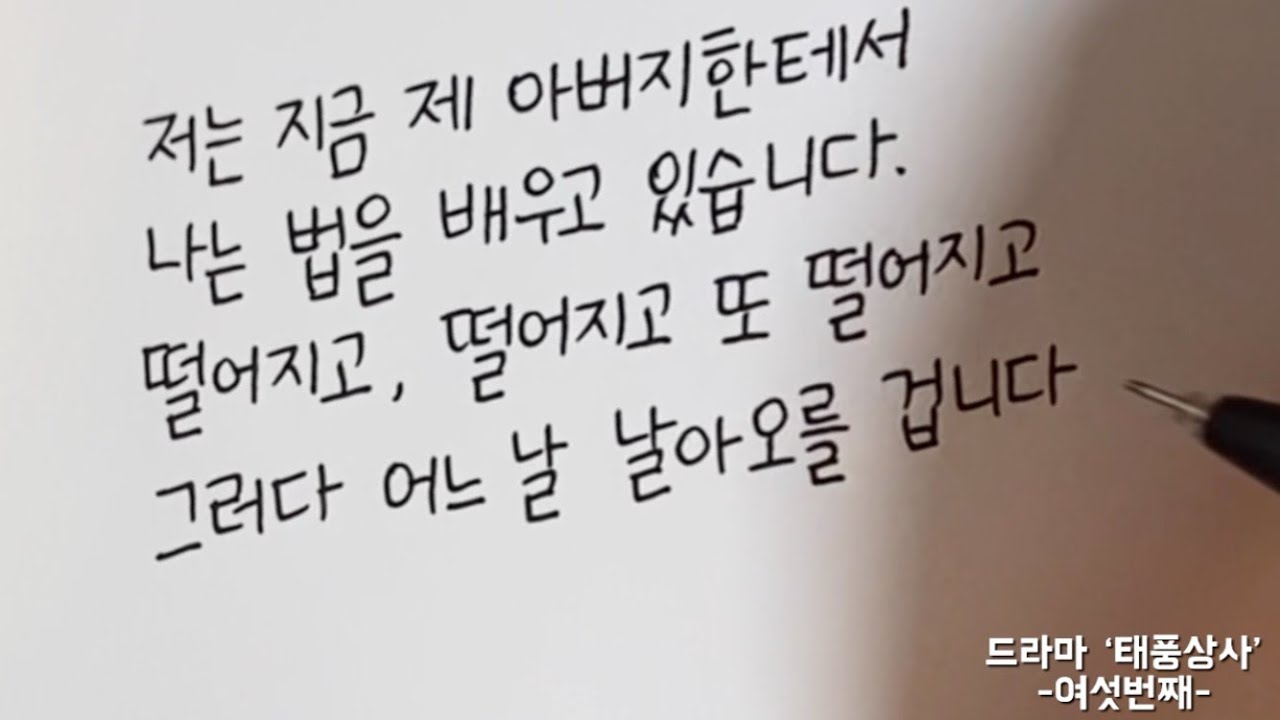 저는 지금 제 아버지한테서
나는 법을 배우고 있습니다.
떨어지고, 떨어지고 또 떨어지고
그러다 어느 날 날아오를 겁니다
드라마 ‘태풍상사’
-여섯번째-